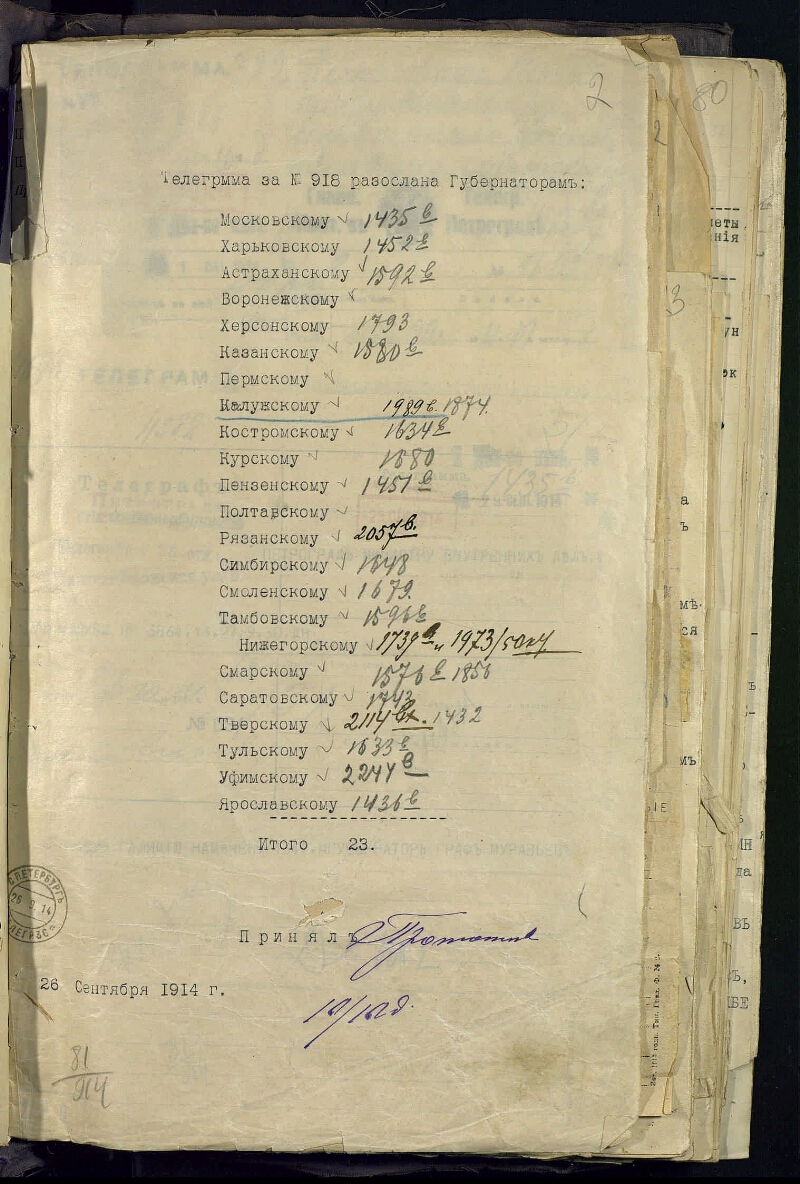 2
80
Телегрмма за № 918 разослана Губернаторамъ:
Московскому ✓ 1435 в
Харьковскому 1452 в
Астраханскому ✓ 1592 в
Воронежскому ✓
Херсонскому 1793
Казанскому ✓ 1580 в
Пермскому ✓
Калужскому ✓ 1989 в. 1874.
Костромскому ✓ 1634 в
Курскому ✓ 1680
Пензенскому ✓ 1451 в
Полтавскому ✓
Рязанскому ✓ 2057 в.
Симбирскому ✓ 1648
Смоленскому ✓ 1679.
Тамбовскому ✓ 1596 в
Нижегорскому ✓ 1739 в и 1973/
Смарскому ✓ 1576 в 1856
Саратовскому ✓ 1743
Тверскому ✓ 2114 вх. 1432
Тульскому ✓ 1633 в
Уфимскому ✓ 2244 в
Ярославскому 1436 в
Итого 23.
Принялъ
26 Сентября 1914 г.
81
914